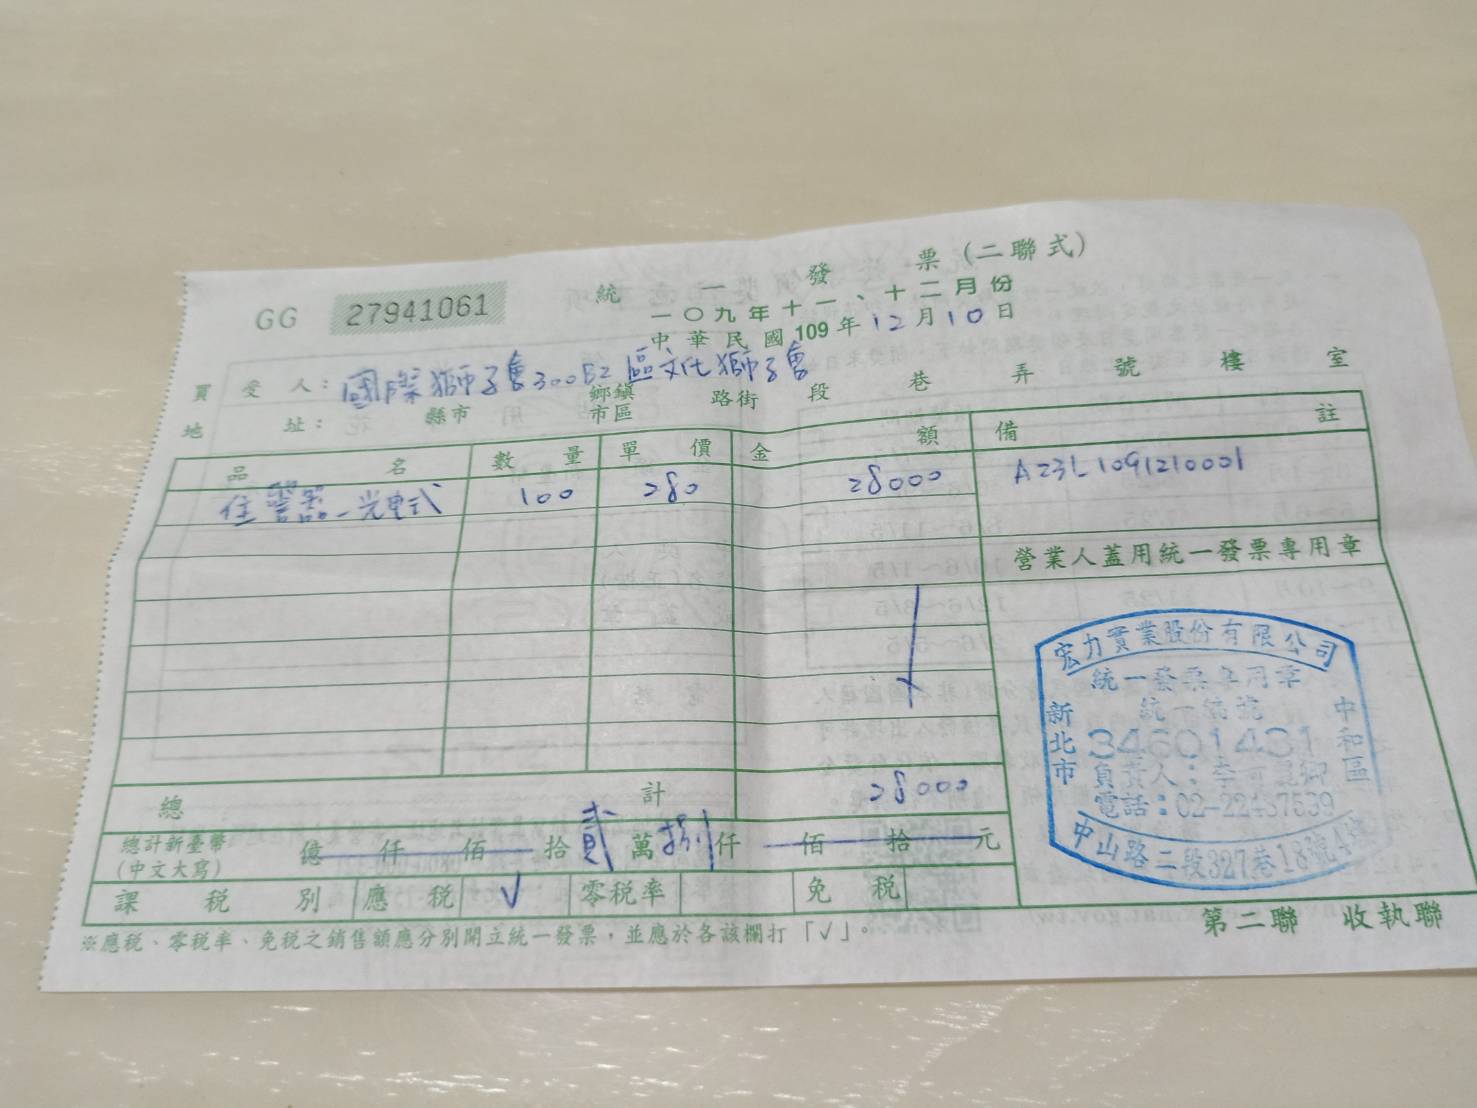 統一發票(二聯式)
GG 27941061
一〇九年十一、十二月份
中華民國109年12月10日
買受人：國際獅子會300B2區文化獅子會
地址：縣市 鄉鎮市區 路街 段 巷 弄 號 樓 室
品名 數量 單價 金額 備註
住警器-光電式 100 280 28000 A23L1091210001
營業人蓋用統一發票專用章
宏力實業股份有限公司
統一發票專用章
統一編號
新北市 34601431 中和區
負責人：
電話：02-22437539
中山路二段327巷18號4樓
總計 28000
總計新臺幣
(中文大寫) 億 仟 佰 拾 貳 萬 捌 仟 佰 拾 元
課稅別 應稅 √ 零稅率 免稅
※應稅、零稅率、免稅之銷售額應分別開立統一發票，並應於各該欄打「√」。
第二聯 收執聯